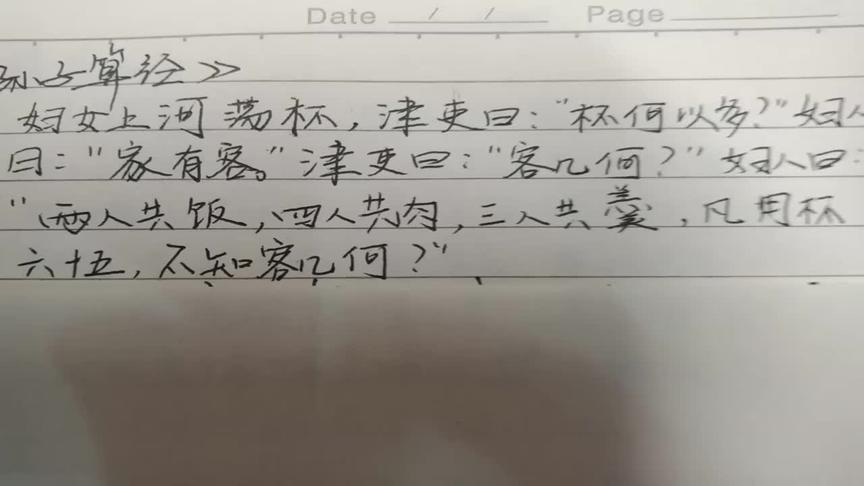 Date / / Page
孙子算经》
妇女上河荡杯,津吏曰:“杯何以多?”妇人
曰:“家有客。”津吏曰:“客几何?”妇人曰:
“两人共饭,四人共肉,三人共羹,凡用杯
六十五,不知客几何?”